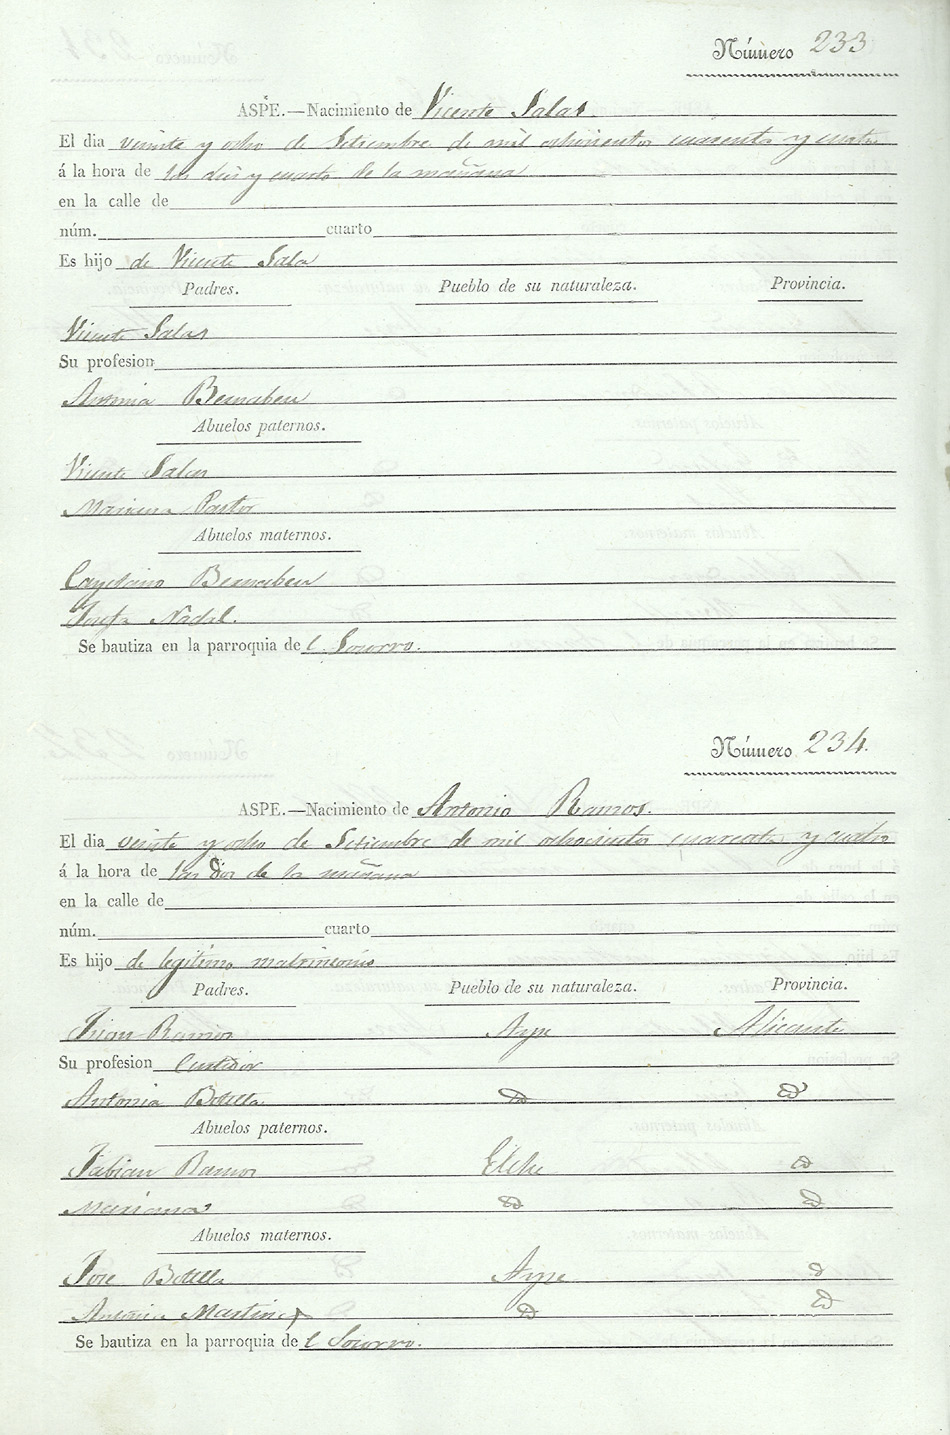 Número 233
ASPE.—Nacimiento de Vicente Salas.
El dia veinte y ocho de Setiembre de mil ochocientos cuarenta y cuatro
á la hora de las diez y cuarto de la mañana
en la calle de
núm. cuarto
Es hijo de Vicente Sala
Padres. Pueblo de su naturaleza. Provincia.
Vicente Salas
Su profesion
Antonia Bernabeu
Abuelos paternos.
Vicente Salas
Mariana Pastor
Abuelos maternos.
Cayetano Bernabeu
Josefa Nadal.
Se bautiza en la parroquia de l Socorro.
Número 234.
ASPE.—Nacimiento de Antonio Ramos.
El dia veinte y ocho de Setiembre de mil ochocientos cuarenta y cuatro
á la hora de las dos de la mañana
en la calle de
núm. cuarto
Es hijo de legitimo matrimonio
Padres. Pueblo de su naturaleza. Provincia.
Juan Ramos Aspe Alicante
Su profesion Curtidor
Antonia Botella
Abuelos paternos.
Fabian Ramos Elche
Mariana
Abuelos maternos.
Jose Botella Aspe
Antonia Martinez
Se bautiza en la parroquia de l Socorro.